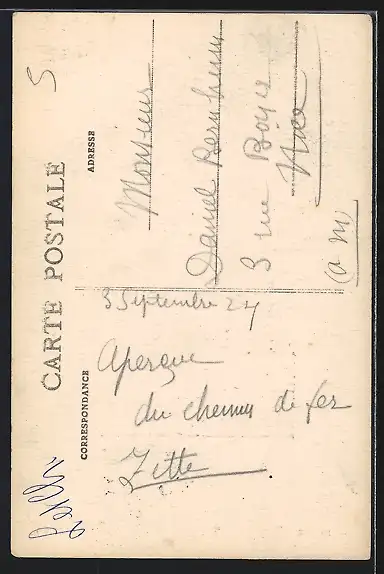 CARTE POSTALE
CORRESPONDANCE
ADRESSE
3 Septembre 24
Aperçue
du chemin de fer
Zette
Monsieur
Daniel Bernheim
3 rue
Nice
(A M)
5